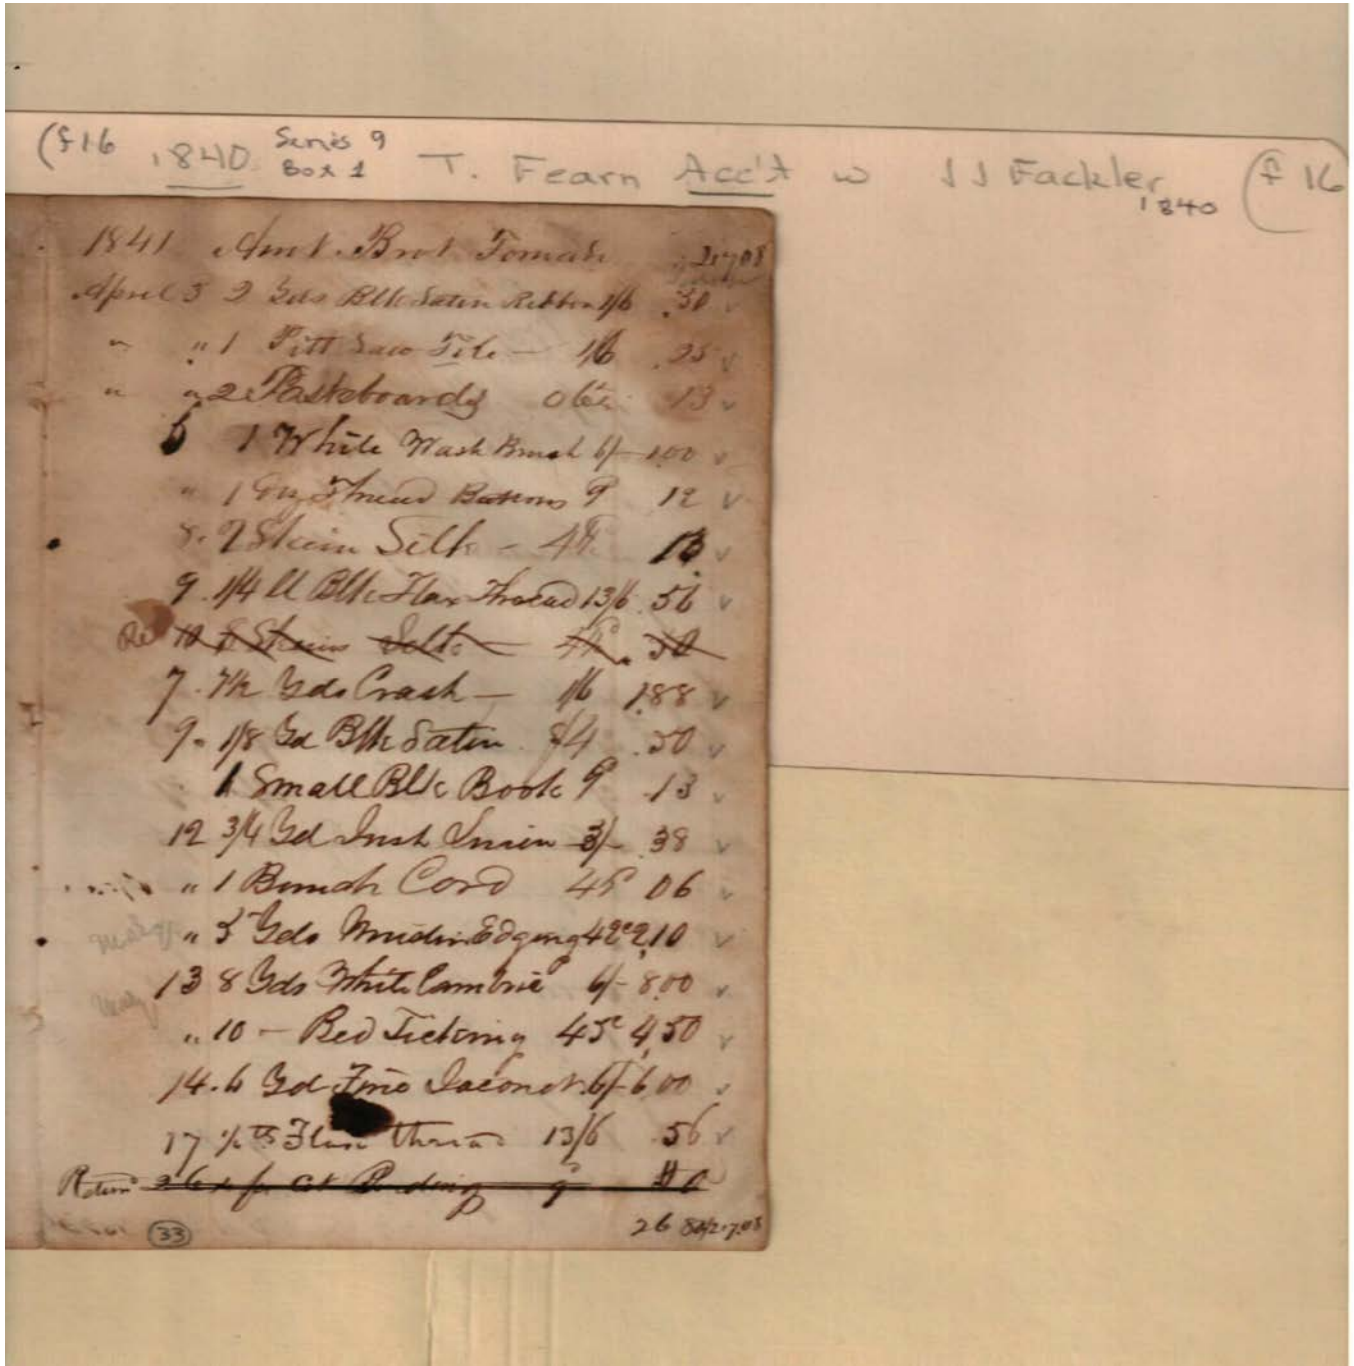 (f16 1840 Series 9 Box 1 T. Fearn Acc't w J J Fackler 1840 (f 16
1841 Amt. Brot Forward
April 3 2 Yds Blk Satin Ribbon 1/6 .50
" " 1 Pitt Saw File — 1/6 .25
" " 2 Pasteboards 13
1 White Wash Brush 6/- 1.00
" 1 Thread Buttons 9d 12
8. Skein Silk - 4d 13
9. 1/4 lb Blk Flax Thread 13/6 .56
10 Skeins Silk
7. 7½ Yds Crash — 1/6 1.88
9. 1/8 Yd Blk Satin .50
1 Small Blk Book 9d .13
12 3/4 Yd Irish Linen 3/- .38
" 1 Bunch Cord 06
" 5 Yds Muslin Edging 42c 2.10
13 8 Yds White Cambric 6/- 8.00
" 10 — Bed Ticking 45c 4.50
14. 6 Yd Fine Jaconet 6/- 6.00
17 Flax thread 13/6 .56
(33) 26